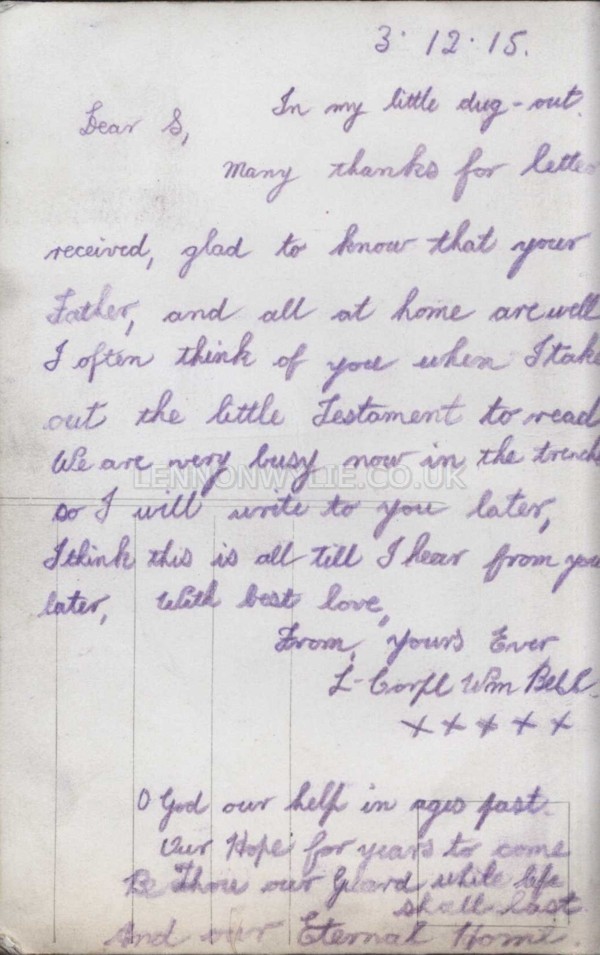 3· 12 · 15.
In my little dug-out.
Dear S,
Many thanks for letter
received, glad to know that your
Father, and all at home are well
I often think of you when I take
out the little Testament to read
We are very busy now in the trench
LENNONWYLIE.CO.UK
so I will write to you later,
I think this is all till I hear from you
later, With best love,
From, Yours Ever
L-Corpl Wm Bell.
× × × × ×
O God our help in ages past.
Our Hope for years to come
Be Thou our Guard while life
shall last.
And our Eternal Home.